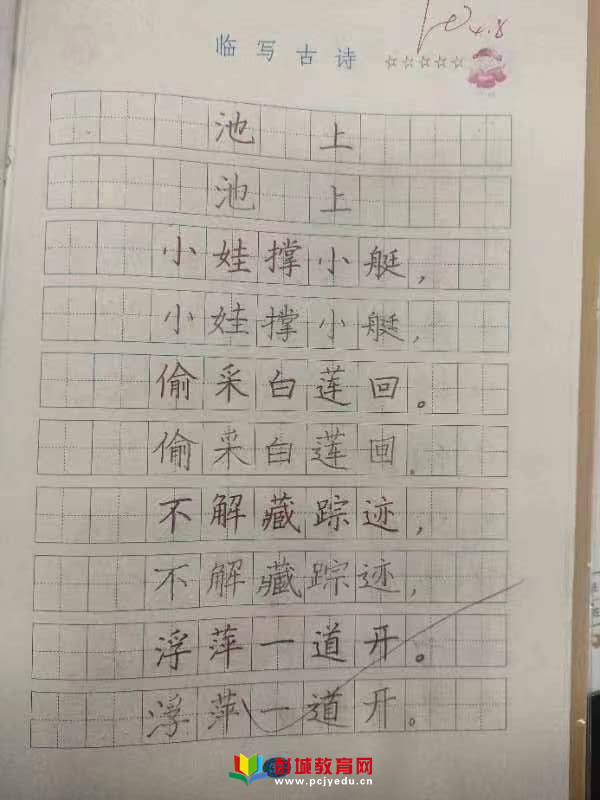 4.8
临写古诗 ☆☆☆☆☆
池上
池上
小娃撑小艇,
小娃撑小艇,
偷采白莲回。
偷采白莲回。
不解藏踪迹,
不解藏踪迹,
浮萍一道开。
浮萍一道开。
彭城教育网
www.pcjyedu.cn